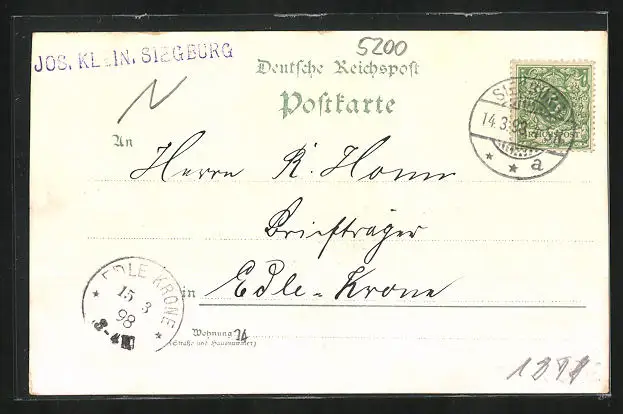 JOS. KLEIN. SIEGBURG
5200
Deutsche Reichspost
Postkarte
SIEGBURG
14.3.98
REICHSPOST
* * a
An
Herrn R. Homm
Briefträger
in Edle-Krone
EDLE KRONE
15 3
98
Wohnung
(Straße und Hausnummer)
1898